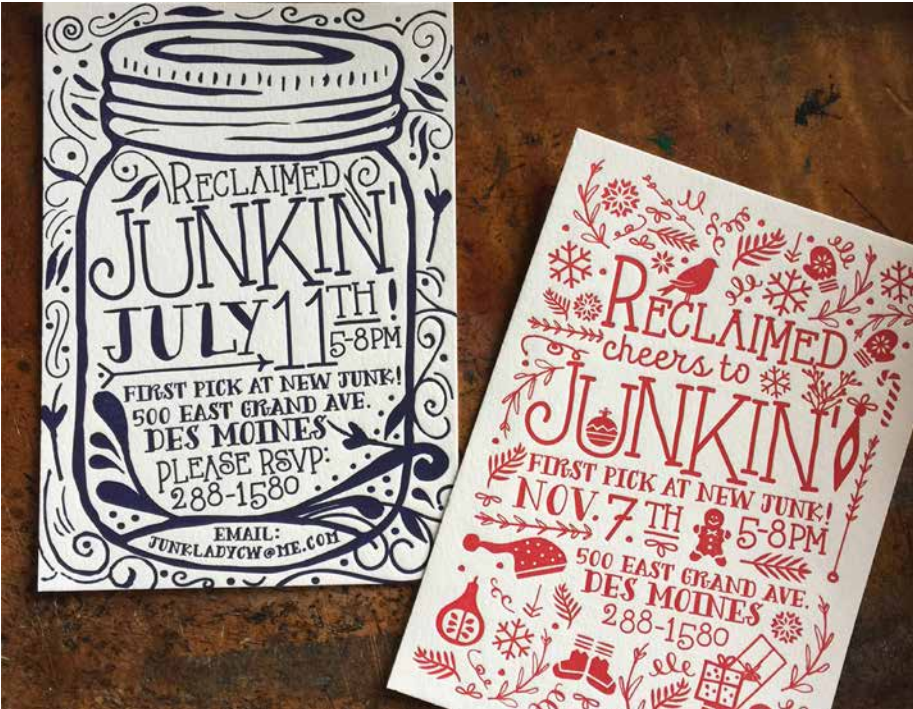 RECLAIMED
JUNKIN'
JULY 11TH!
5-8PM
FIRST PICK AT NEW JUNK!
500 EAST GRAND AVE.
DES MOINES
PLEASE RSVP:
288-1580
EMAIL:
JUNKLADYCW@ME.COM
RECLAIMED
cheers to
JUNKIN'
FIRST PICK AT NEW JUNK!
NOV. 7. TH 5-8PM
500 EAST GRAND AVE.
DES MOINES
288-1580